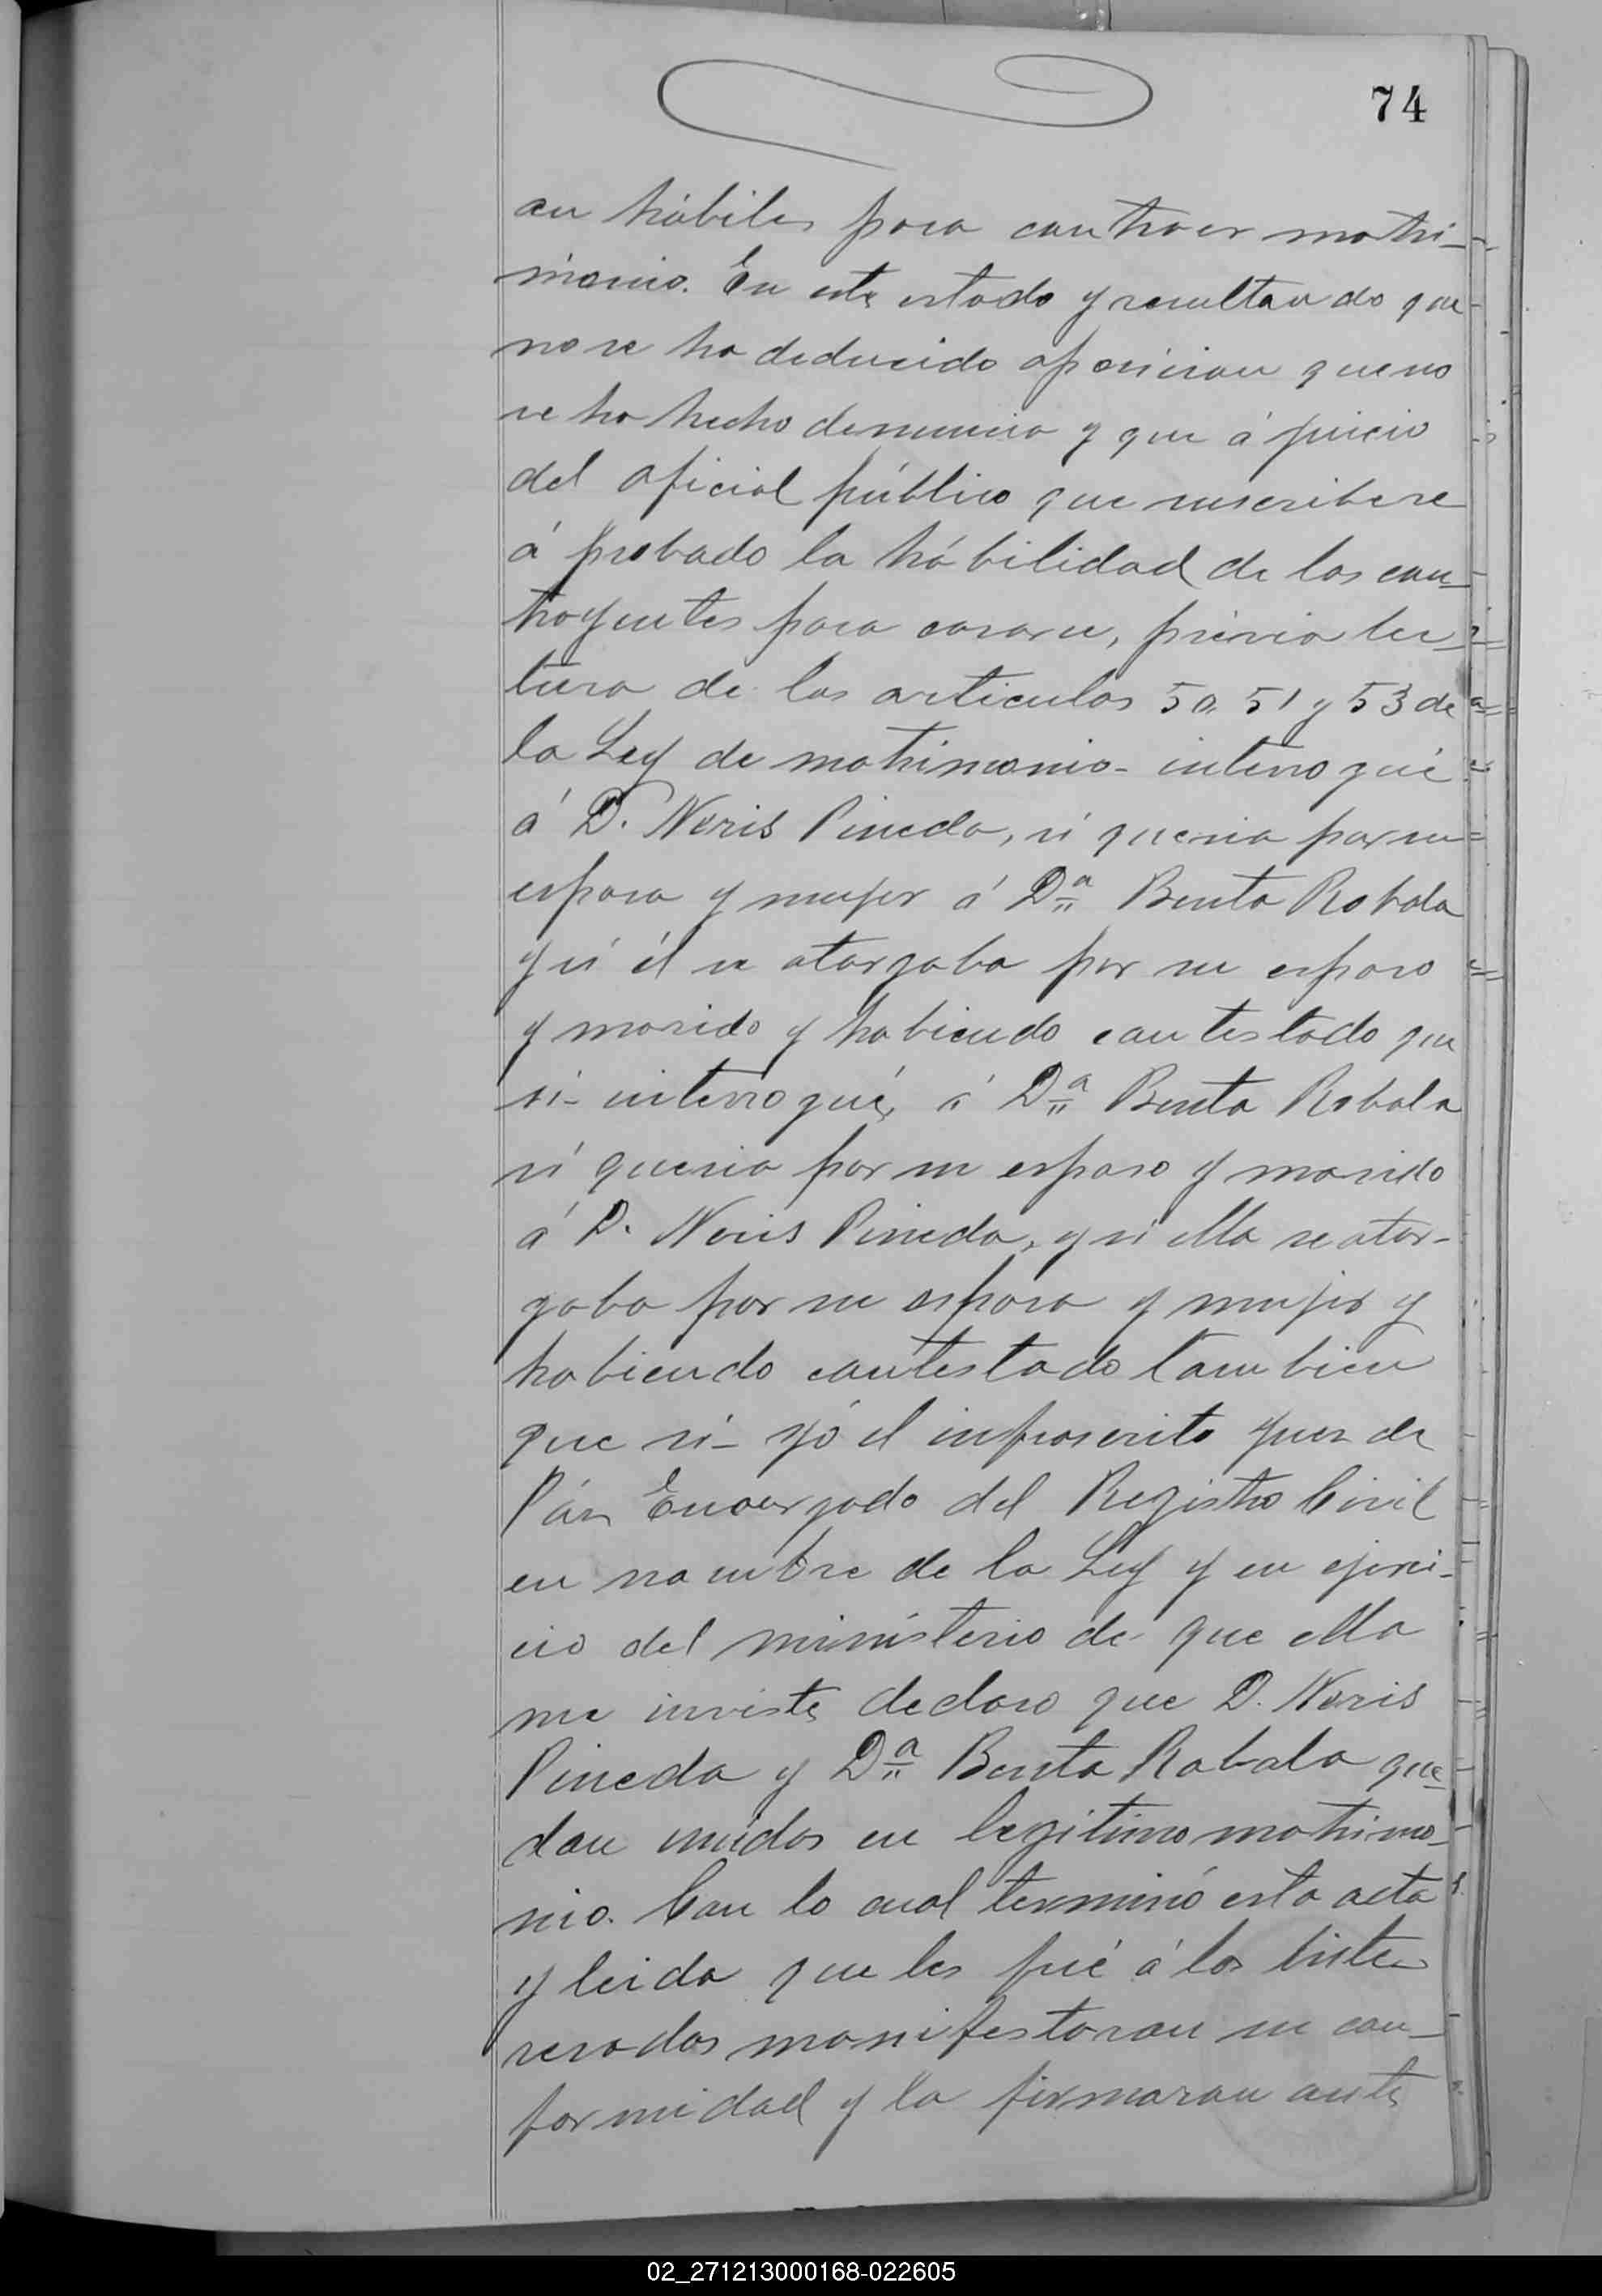 74
an hábiles para contraer matri-
monio. En este estado y resultando que
no se ha deducido oposicion que no
se ha hecho denuncia y que á juicio
del oficial público que suscribe se
á probado la hábilidad de los con-
trayentes para casarse, prévia lec-
tura de los articulos 50, 51 y 53 de
la Ley de matrimonio - interrogué
á D. Neris Pineda, si queria por su
esposa y mujer á Dª Benta Robala
y si él se otorgaba por su esposo
y marido y habiendo contestado que
si - interrogué, á Dª Benta Robala
si queria por su esposo y marido
á D. Neris Pineda, y si ella se otor-
gaba por su esposa y mujer y
habiendo contestado tambien
que si - yó el infrascrito Juez de
Páz Encargado del Registro Civil
en nombre de la Ley y en ejerci-
cio del ministerio de que ella
me inviste declaro que D. Neris
Pineda y Dª Benta Robala que-
dan unidos en legitimo matrimo-
nio. Con lo cual terminó esta acta
y leida que les fué á los inte-
resados manifestaron su con-
formidad y la firmaron ante
02_271213000168-022605